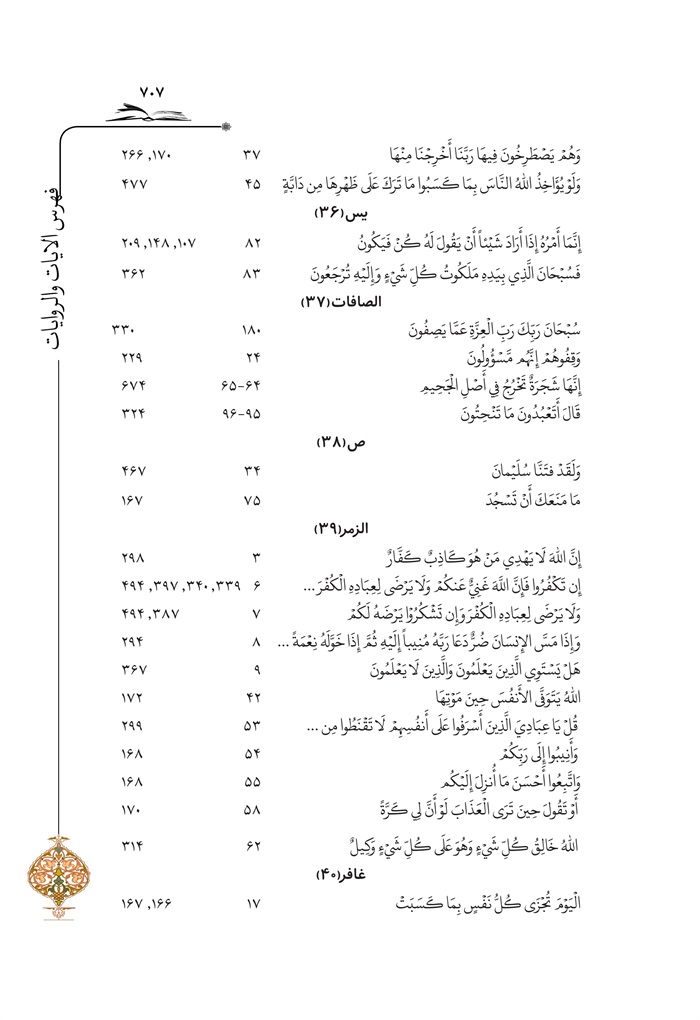 ۷۰۷
فهرس الآيات والروايات
وَهُمْ يَصْطَرِخُونَ فِيهَا رَبَّنَا أَخْرِجْنَا مِنْهَا ۳۷ ۱۷۰, ۲۶۶
وَلَوْ يُؤَاخِذُ اللهُ النَّاسَ بِمَا كَسَبُوا مَا تَرَكَ عَلَى ظَهْرِهَا مِن دَابَّةٍ ۴۵ ۴۷۷
يس(۳۶)
إِنَّمَا أَمْرُهُ إِذَا أَرَادَ شَيْئاً أَنْ يَقُولَ لَهُ كُنْ فَيَكُونُ ۸۲ ۱۰۷, ۱۴۸, ۲۰۹
فَسُبْحَانَ الَّذِي بِيَدِهِ مَلَكُوتُ كُلِّ شَيْءٍ وَإِلَيْهِ تُرْجَعُونَ ۸۳ ۳۶۲
الصافات(۳۷)
سُبْحَانَ رَبِّكَ رَبِّ الْعِزَّةِ عَمَّا يَصِفُونَ ۱۸۰ ۳۳۰
وَقِفُوهُمْ إِنَّهُم مَّسْؤُولُونَ ۲۴ ۲۲۹
إِنَّهَا شَجَرَةٌ تَخْرُجُ فِي أَصْلِ الْجَحِيمِ ۶۴-۶۵ ۶۷۴
قَالَ أَتَعْبُدُونَ مَا تَنْحِتُونَ ۹۵-۹۶ ۳۲۴
ص(۳۸)
وَلَقَدْ فَتَنَّا سُلَيْمانَ ۳۴ ۴۶۷
مَا مَنَعَكَ أَنْ تَسْجُدَ ۷۵ ۱۶۷
الزمر(۳۹)
إِنَّ اللهَ لَا يَهْدِي مَنْ هُوَ كَاذِبٌ كَفَّارٌ ۳ ۲۹۸
إِن تَكْفُرُوا فَإِنَّ اللَّهَ غَنِيٌّ عَنكُمْ وَلَا يَرْضَى لِعِبَادِهِ الْكُفْرَ... ۶ ۳۳۹, ۳۴۰, ۳۹۷, ۴۹۴
وَلَا يَرْضَى لِعِبَادِهِ الْكُفْرَ وَإِن تَشْكُرُوا يَرْضَهُ لَكُمْ ۷ ۳۸۷, ۴۹۴
وَإِذَا مَسَّ الإِنسَانَ ضُرٌّ دَعَا رَبَّهُ مُنِيباً إِلَيْهِ ثُمَّ إِذَا خَوَّلَهُ نِعْمَةً ... ۸ ۲۹۴
هَلْ يَسْتَوِي الَّذِينَ يَعْلَمُونَ وَالَّذِينَ لَا يَعْلَمُونَ ۹ ۳۶۷
اللهُ يَتَوَفَّى الأَنفُسَ حِينَ مَوْتِهَا ۴۲ ۱۷۲
قُلْ يَا عِبَادِيَ الَّذِينَ أَسْرَفُوا عَلَى أَنفُسِهِمْ لَا تَقْنَطُوا مِن ... ۵۳ ۲۹۹
وَأَنِيبُوا إِلَى رَبِّكُمْ ۵۴ ۱۶۸
وَاتَّبِعُوا أَحْسَنَ مَا أُنزِلَ إِلَيْكُم ۵۵ ۱۶۸
أَوْ تَقُولَ حِينَ تَرَى الْعَذَابَ لَوْ أَنَّ لِي كَرَّةً ۵۸ ۱۷۰
اللهُ خَالِقُ كُلِّ شَيْءٍ وَهُوَ عَلَى كُلِّ شَيْءٍ وَكِيلٌ ۶۲ ۳۱۴
غافر(۴۰)
الْيَوْمَ تُجْزَى كُلُّ نَفْسٍ بِمَا كَسَبَتْ ۱۷ ۱۶۶, ۱۶۷